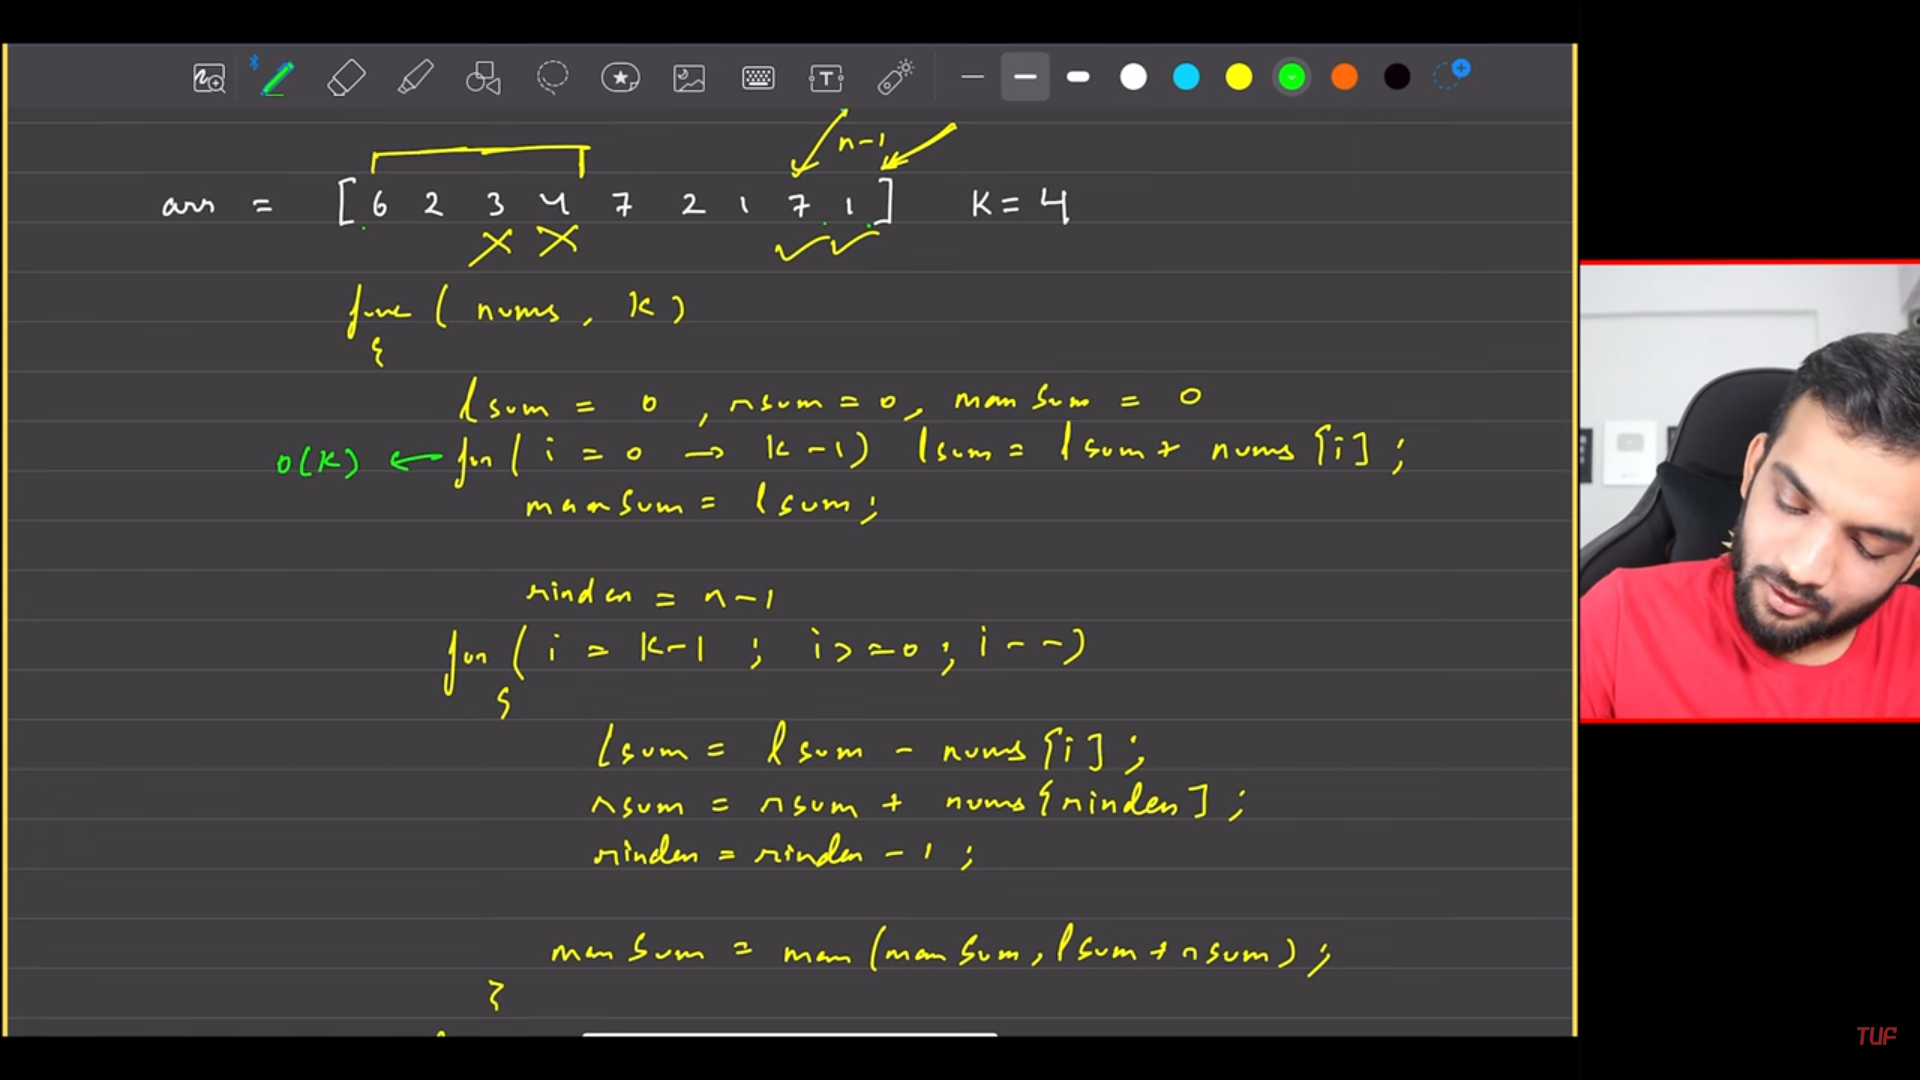 n-1
arr = [ 6 2 3 4 7 2 1 7 1 ] K = 4
func ( nums , k )
{
lsum = 0 , rsum = 0 , maxSum = 0
O(K) ← for ( i = 0 → k-1 ) lsum = lsum + nums [i] ;
maxSum = lsum ;
rindex = n-1
for ( i = k-1 ; i >= 0 ; i-- )
{
lsum = lsum - nums [i] ;
rsum = rsum + nums [rindex] ;
rindex = rindex - 1 ;
maxSum = max (maxSum , lsum + rsum) ;
}
TUF